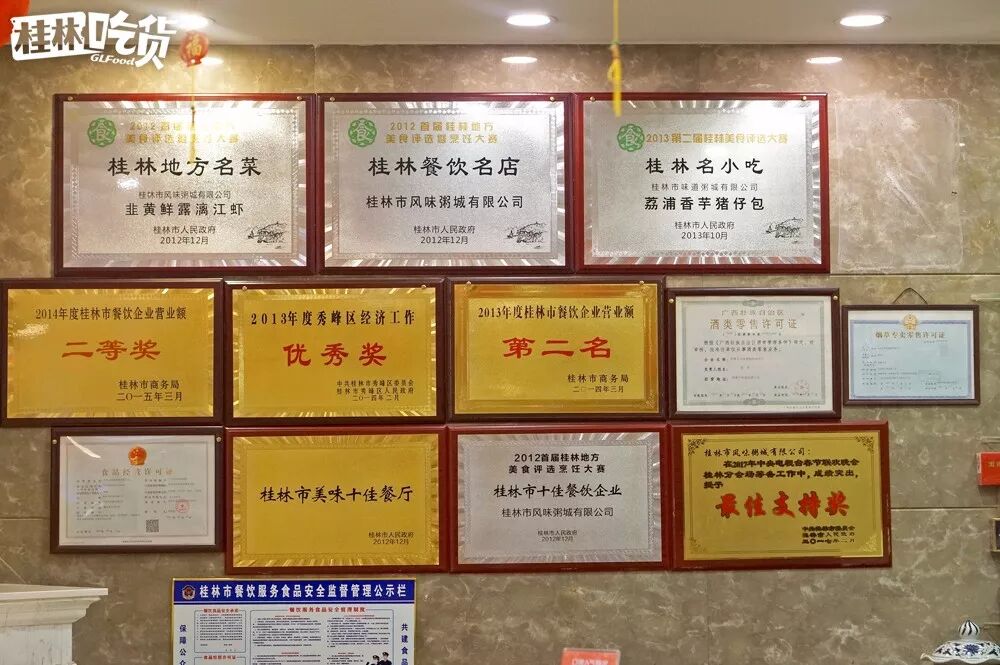 桂林吃货
GLFood
福
2012首届桂林地方
美食评选暨烹饪大赛
桂林地方名菜
桂林市风味粥城有限公司
韭黄鲜露漓江虾
桂林市人民政府
2012年12月
2012首届桂林地方
美食评选暨烹饪大赛
桂林餐饮名店
桂林市风味粥城有限公司
桂林市人民政府
2012年12月
2013第二届桂林美食评选大赛
桂林名小吃
桂林市味道粥城有限公司
荔浦香芋猪仔包
桂林市人民政府
2013年10月
2014年度桂林市餐饮企业营业额
二等奖
桂林市商务局
二〇一五年三月
2013年度秀峰区经济工作
优秀奖
中共桂林市秀峰区委员会
桂林市秀峰区人民政府
二〇一四年二月
2013年度桂林市餐饮企业营业额
第二名
桂林市商务局
二〇一四年三月
广西壮族自治区
酒类零售许可证
烟草专卖零售许可证
食品经营许可证
桂林市美味十佳餐厅
桂林市人民政府
2012年12月
2012首届桂林地方
美食评选烹饪大赛
桂林市十佳餐饮企业
桂林市风味粥城有限公司
桂林市人民政府
2012年12月
桂林市风味粥城有限公司:
在2017年中央电视台春节联欢晚会
桂林分会场筹备工作中,成绩突出,
授予
最佳支持奖
中共桂林市委员会
桂林市人民政府
二〇一七年二月
桂林市餐饮服务食品安全监督管理公示栏
餐饮服务食品安全管理制度
保障公众
共建食品